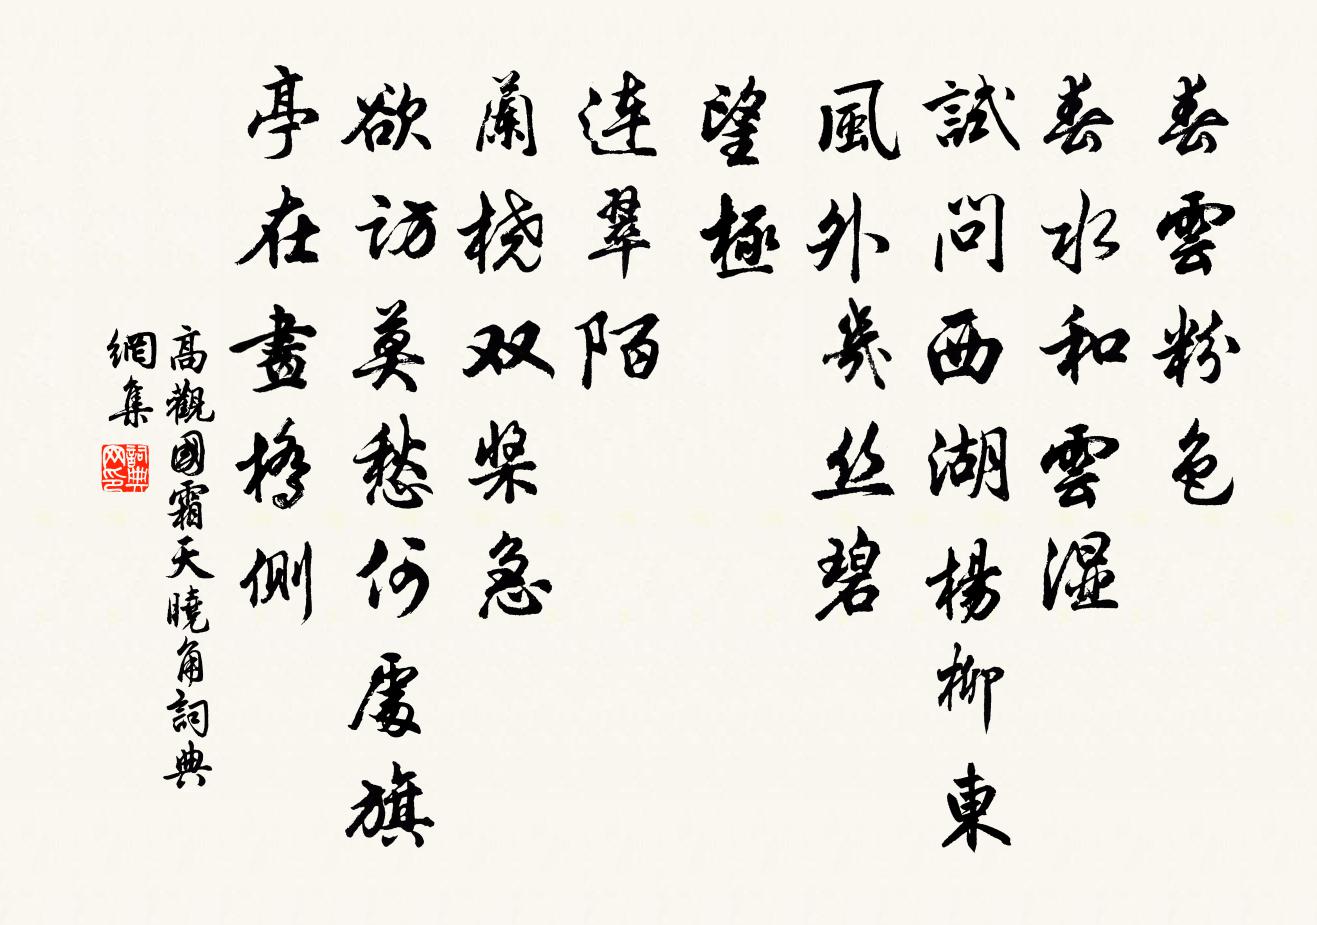 春雲粉色
春水和雲湿
試問西湖楊柳東
風外幾丝碧
望極
连翠陌
蘭桡双桨急
欲訪莫愁何處旗
亭在畫橋側
高觀國霜天曉角詞典
網集
詞典网印